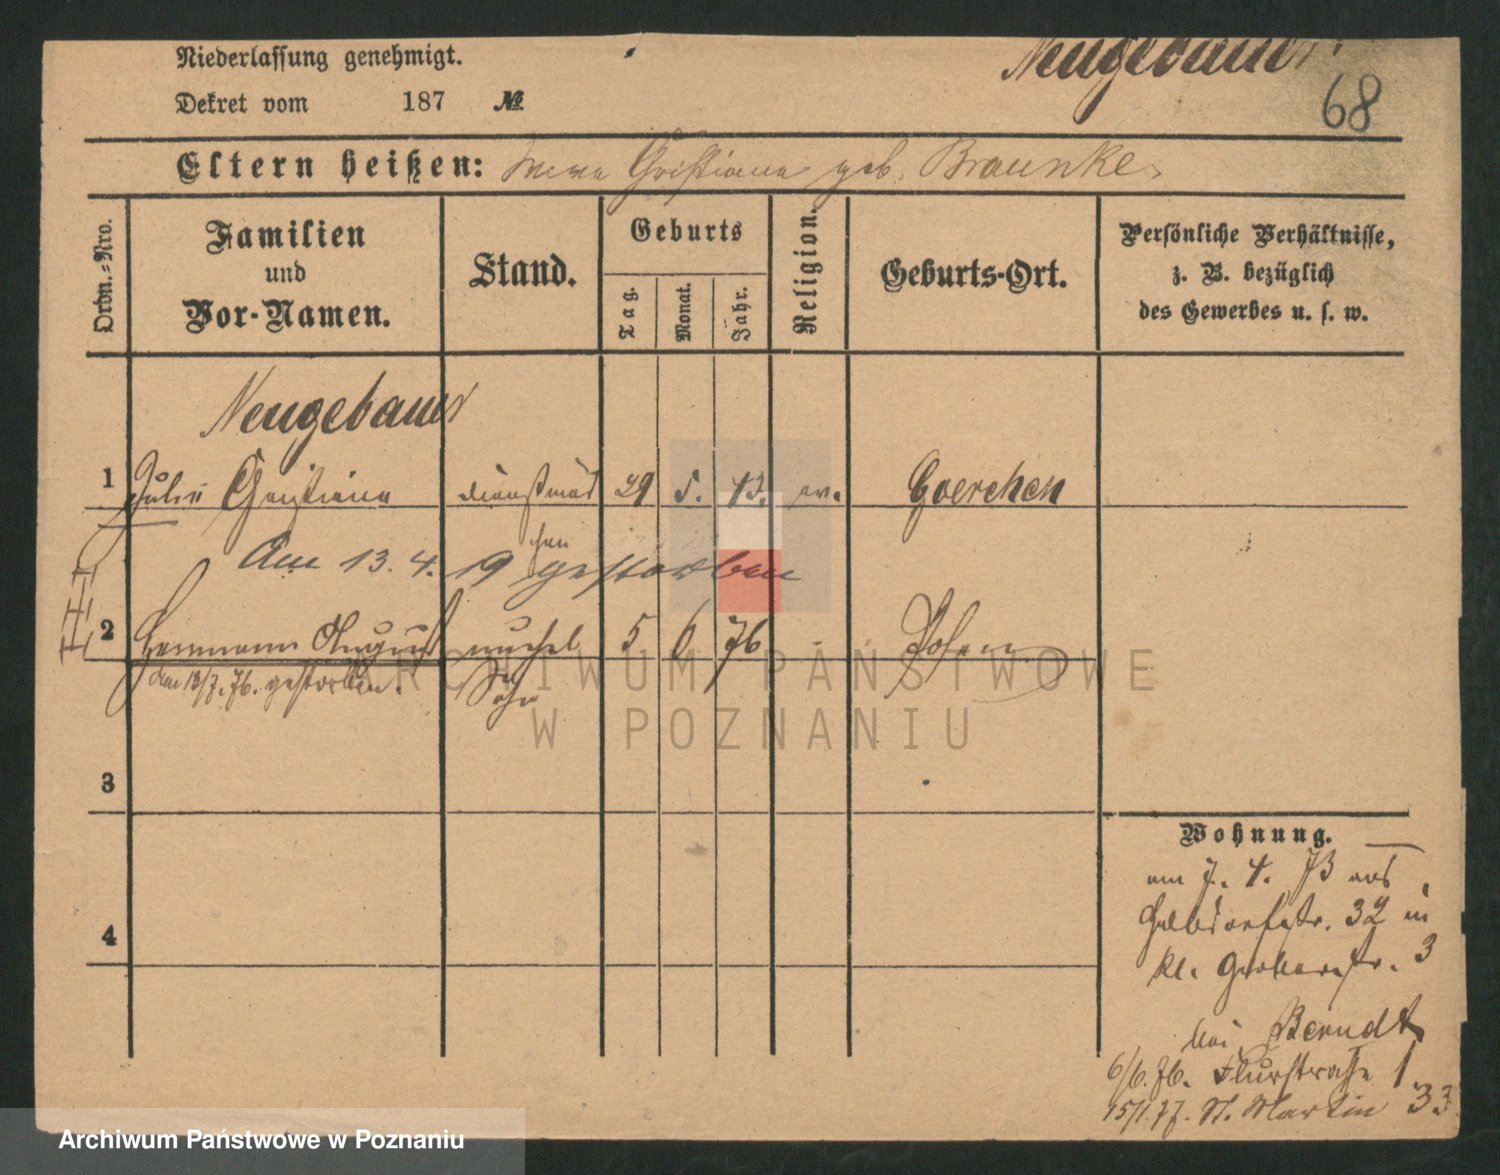 Niederlassung genehmigt.
Neugebauer.
Dekret vom 187 №
68
Eltern heißen: Christiane geb. Braunke.
Ordn.-Nro.
Familien und Vor-Namen.
Stand.
Geburts
Tag.
Monat.
Jahr.
Religion.
Geburts-Ort.
Persönliche Verhältnisse,
z. B. bezüglich
des Gewerbes u. s. w.
Neugebauer
1 Julie Christiane dienstmäd 29 5. 43. ev. Goerchen
chen
Am 13. 4. 19 gestorben
2 Hermann August unehel 5 6 76 Posen
am 18/7. 76. gestorben. Sohn
3
4
Wohnung.
am 7. 4. 73 aus
Halbdorfstr. 32 in
kl. Gerberstr. 3
bei Berndt
6/6. 76. Flurstraße 1
15/1. 77. St. Martin 33
ARCHIWUM PAŃSTWOWE
W POZNANIU
Archiwum Państwowe w Poznaniu